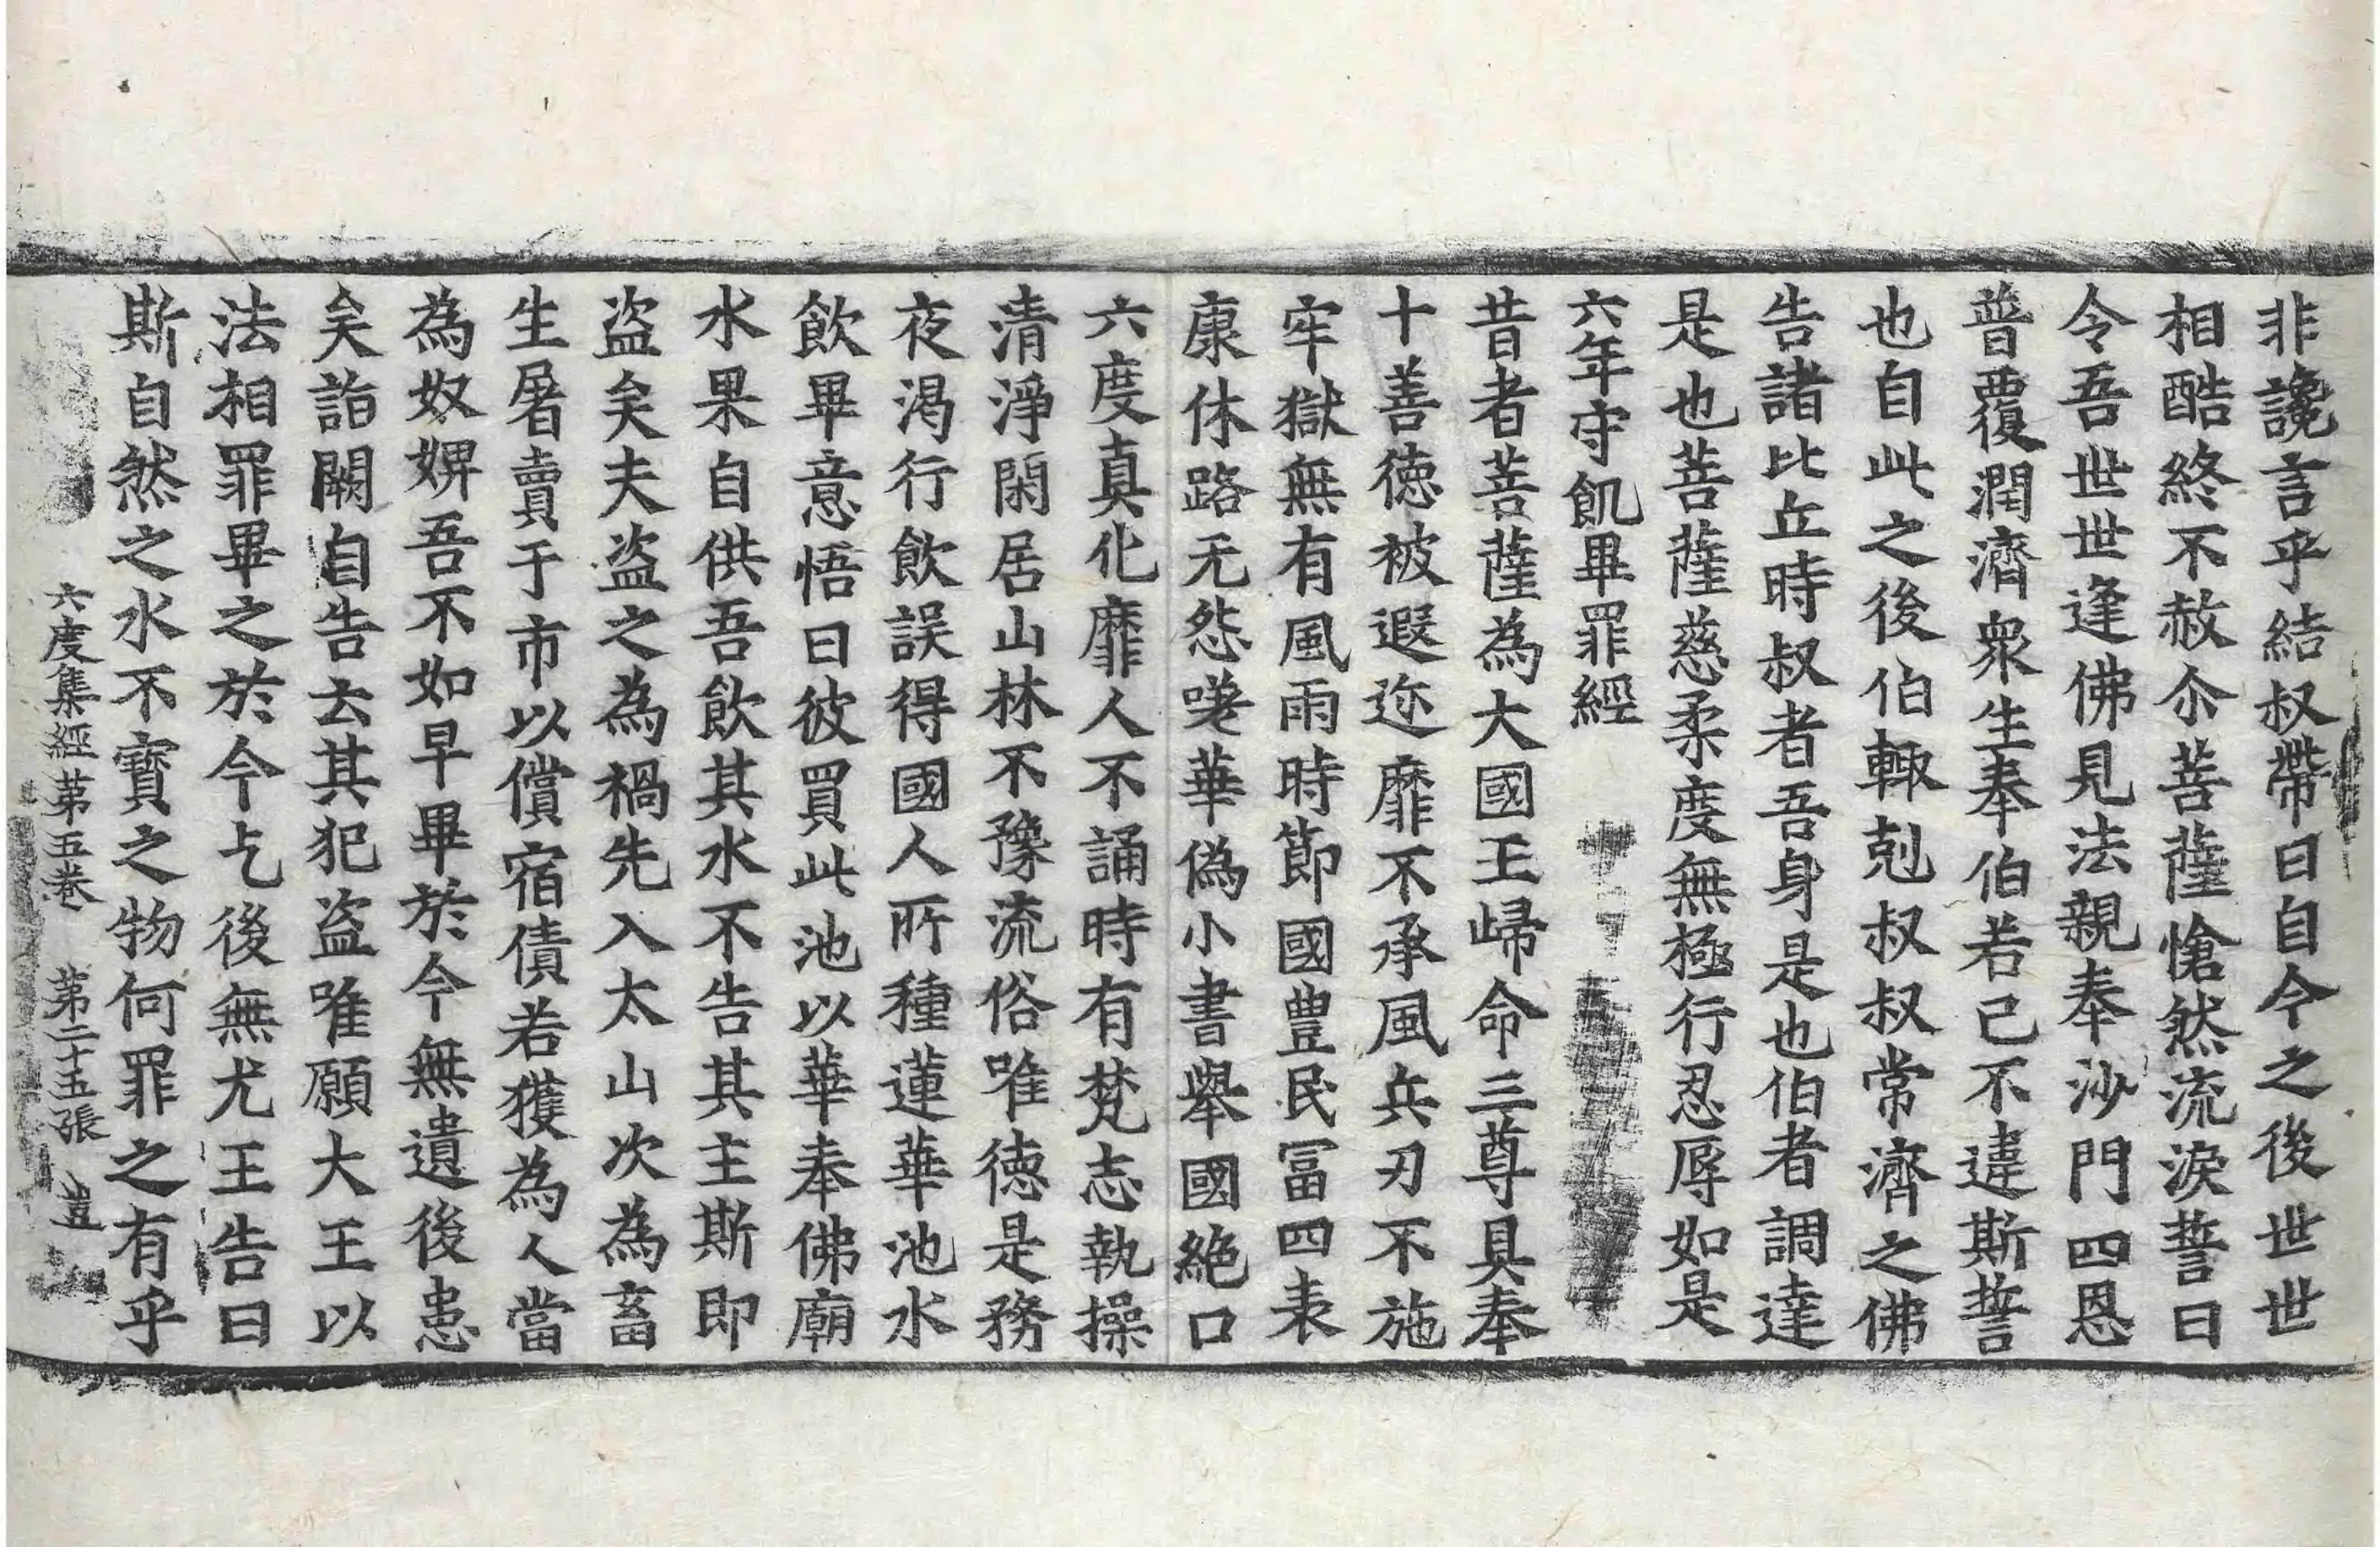 非讒言乎結叔帶曰自今之後世世
相酷終不赦尒菩薩愴然流淚誓曰
令吾世世逢佛見法親奉沙門四恩
普覆潤濟衆生奉伯若己不違斯誓
也自此之後伯輙剋叔叔常濟之佛
告諸比丘時叔者吾身是也伯者調達
是也菩薩慈柔度無極行忍辱如是
六年守飢畢罪經
昔者菩薩為大國王歸命三尊具奉
十善德被遐迩靡不承風兵刃不施
牢獄無有風雨時節國豊民冨四表
康休路无怨嗟華偽小書舉國絶口
六度真化靡人不誦時有梵志執操
清淨閑居山林不豫流俗唯德是務
夜渴行飲誤得國人所種蓮華池水
飲畢意悟曰彼買此池以華奉佛廟
水果自供吾飲其水不告其主斯即
盗矣夫盗之為禍先入太山次為畜
生屠賣于市以償宿債若獲為人當
為奴婢吾不如早畢於今無遺後患
矣詣闕自告云其犯盗唯願大王以
法相罪畢之於今乞後無尤王告曰
斯自然之水不寶之物何罪之有乎
六度集經第五卷 第二十五張 豈